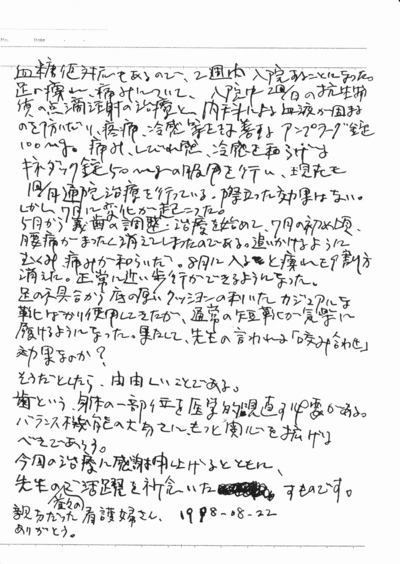 血糖値対応もあるので、2週内入院することになった。
足の痺れ、痛みについて、入院は2週の抗生物
質の点滴注射の治療と、内科による血液が固まる
のを防いだり、疼痛、冷感等を改善するアンプラーグ錠
100mg。痛み、しびれ感、冷感を和らげる
キネダック錠50mgの服用を行い、現在も
1回/月通院治療を行っている。際立った効果はない。
しかし7月に変化が起こった。
5月から義歯の調整、治療を始めて、7月の初め頃、
腰痛がまったく消えてしまったのである。追いかけるように
むくみ、痛みが和らいだ。8月に入ると痺れも9割方
消えた。正常に近い歩行ができるようになった。
足の不具合から底の厚いクッションの利いたカジュアルな
靴ばかり使用してきたが、通常の短靴が気楽に
履けるようになった。果たして、先生の言われる「咬み合わせ」
効果なのか?
そうだとしたら、由由しいことである。
歯という、身体の一部位を医学的視直す必要がある。
バランス機能の大切さに、もっと関心を拡げる
べきであろう。
今回の治療に感謝申し上げるとともに、
先生のご活躍を祈念いた すものです。
親切だった 看護婦さん、 1998-08-22
ありがとう。